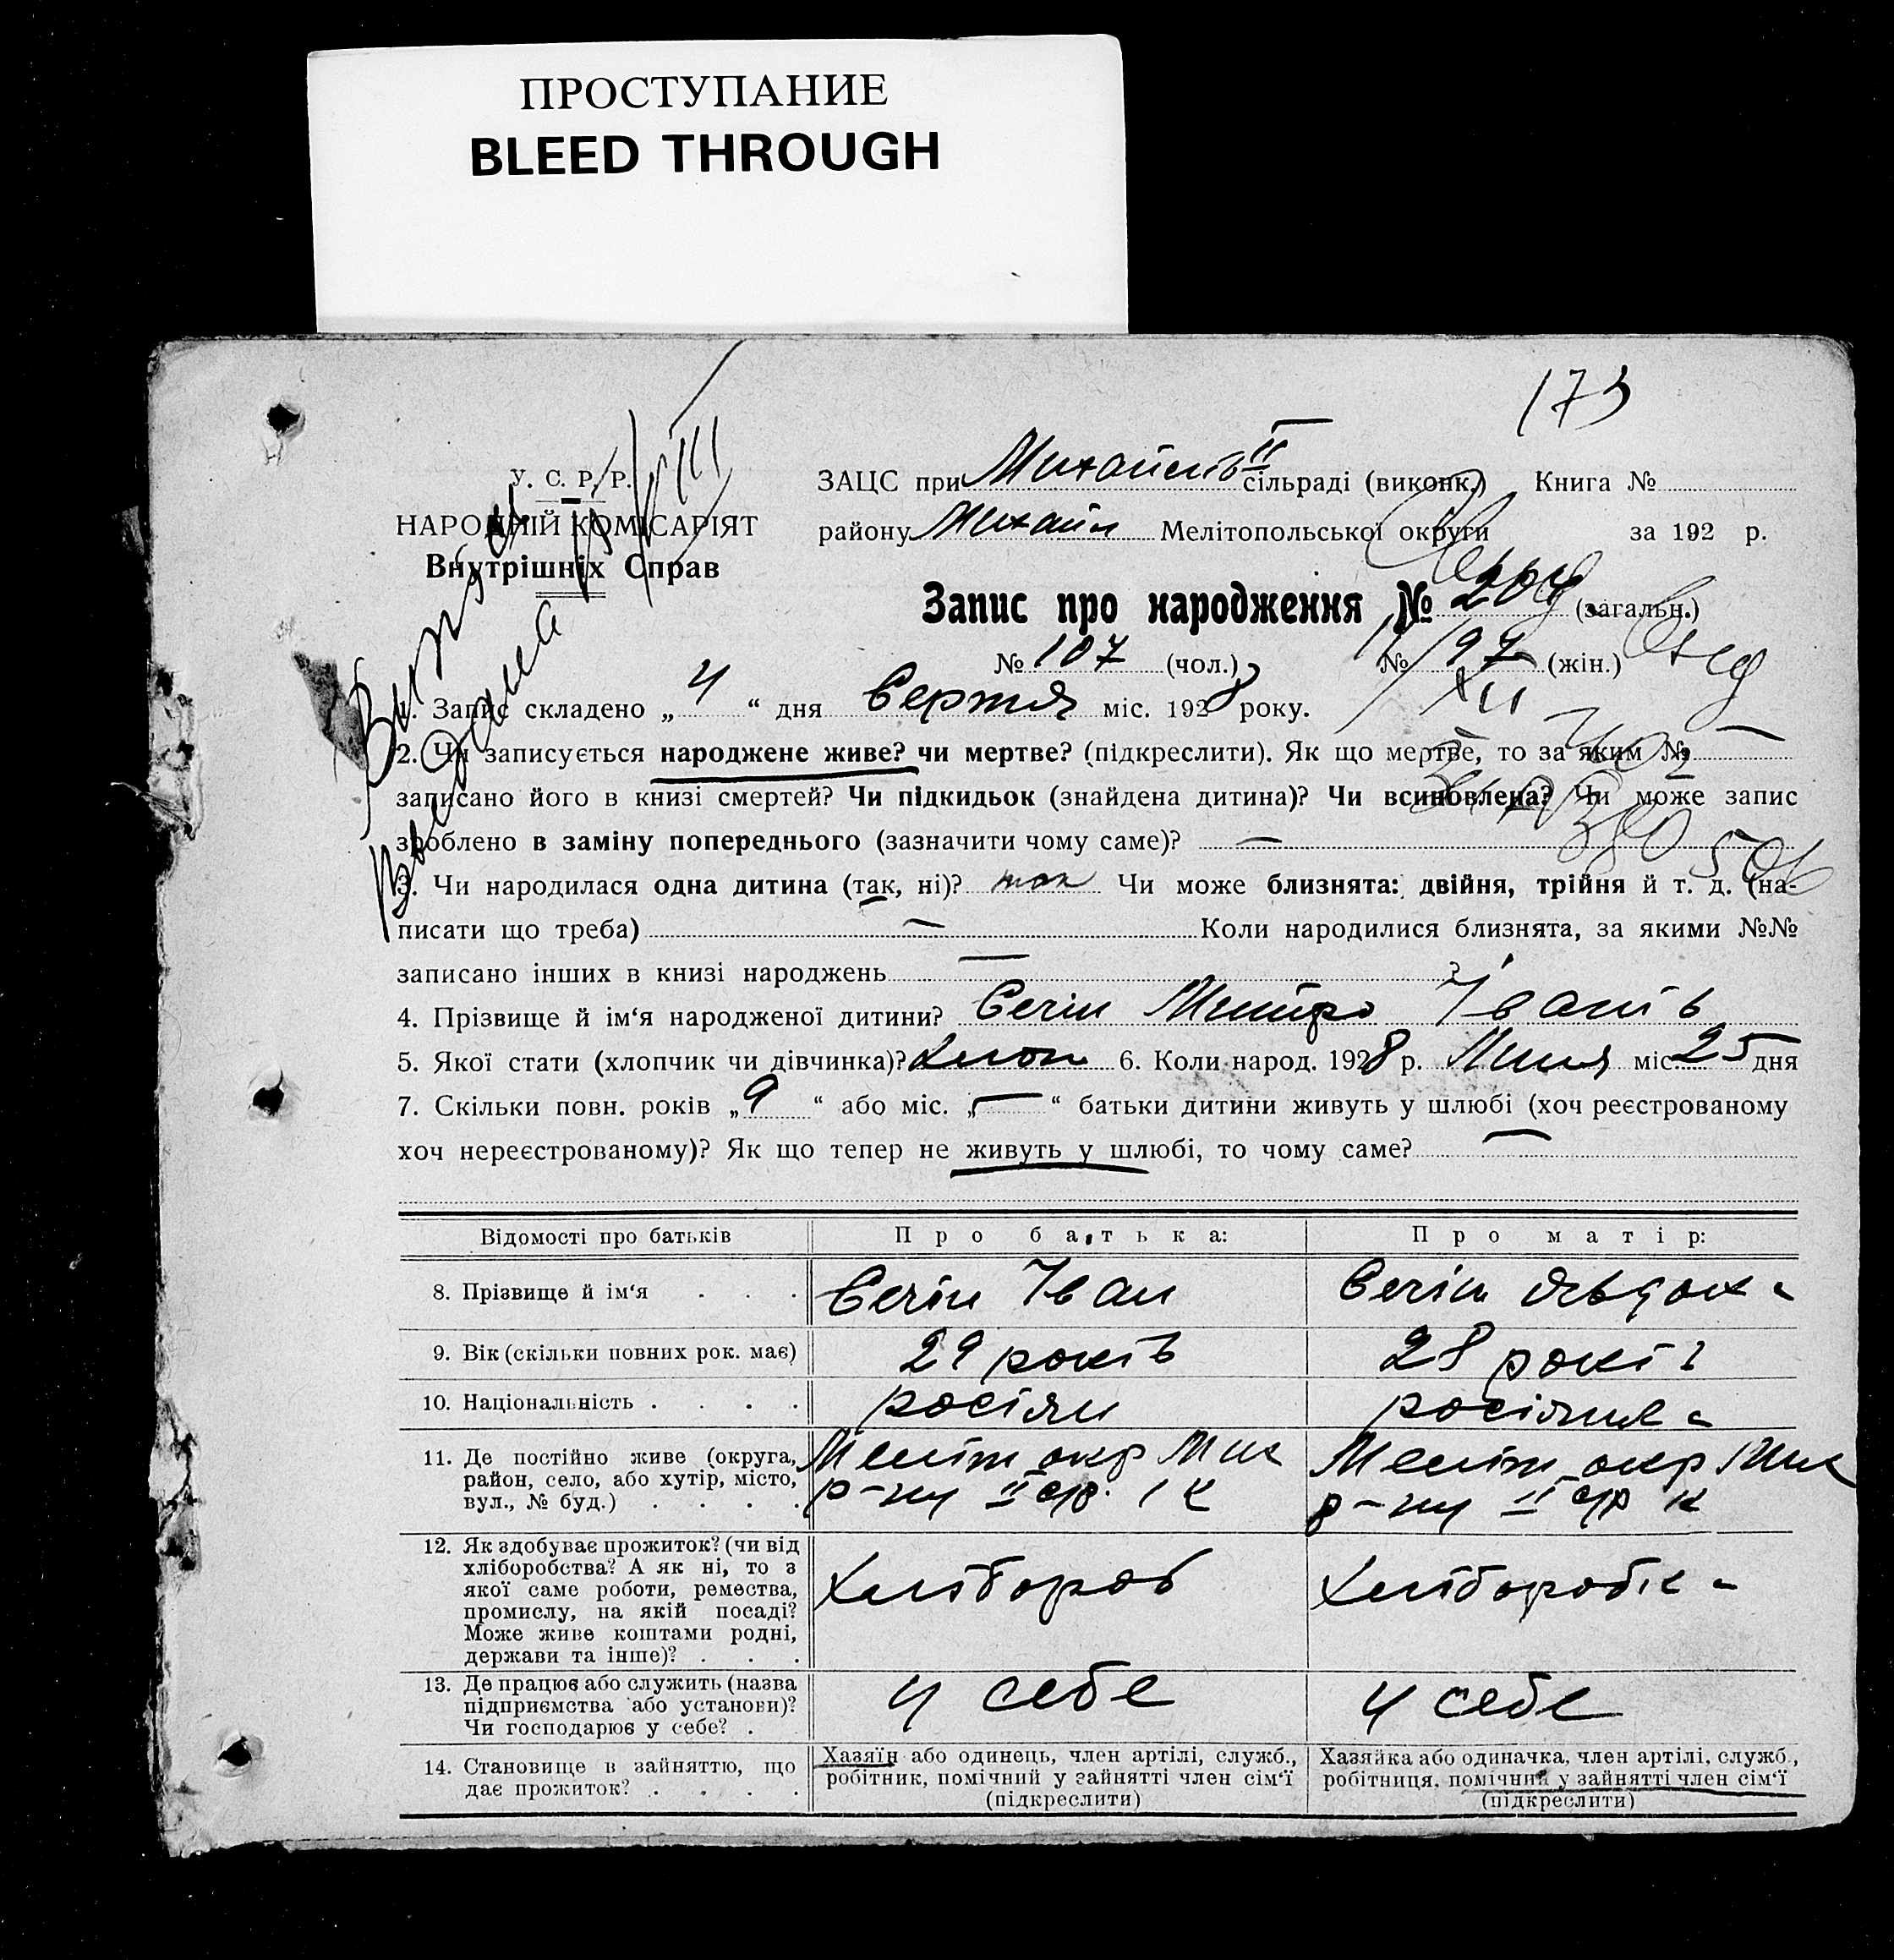 ПРОСТУПАНИЕ
BLEED THROUGH
173
У. С. Р. Р.
НАРОДНІЙ КОМІСАРІЯТ
Внутрішніх Справ
ЗАЦС при Михайлів II сільраді (виконк.) Книга №
району Михайл Мелітопольської округи за 192 р.
Запис про народження № 204 (загальн.)
№ 107 (чол.) № 97 (жін.)
1. Запис складено „ 4 “ дня Серпня міс. 1928 року.
2. Чи записується народжене живе? чи мертве? (підкреслити). Як що мертве, то за яким №
записано його в книзі смертей? Чи підкидьок (знайдена дитина)? Чи всиновлена? Чи може запис
зроблено в заміну попереднього (зазначити чому саме)? —
3. Чи народилася одна дитина (так, ні)? так Чи може близнята: двійня, трійня й т. д. (на-
писати що треба) — Коли народилися близнята, за якими №№
записано інших в книзі народжень — ?
4. Прізвище й ім‘я народженої дитини? Сечін Митро Іванів
5. Якої стати (хлопчик чи дівчинка)? хлоп 6. Коли народ. 1928 р. Липня міс. 25 дня
7. Скільки повн. років „ 9 “ або міс. „ — “ батьки дитини живуть у шлюбі (хоч реєстрованому
хоч нереєстрованому)? Як що тепер не живуть у шлюбі, то чому саме? —
Відомості про батьків Про батька: Про матір:
8. Прізвище й ім‘я . . . Сечін Іван Сечін Явдох-
9. Вік (скільки повних рок. має) 29 років 28 років
10. Національність . . . . росіян росіянк-
11. Де постійно живе (округа, район, село, або хутір, місто, вул., № буд.) . . . .
Меліт окр Мих
р-ну II ср.
Меліт окр Мих
р-ну II ср
12. Як здобуває прожиток? (чи від хліборобства? А як ні, то з якої саме роботи, ремества, промислу, на якій посаді? Може живе коштами родні, держави та інше)? . . .
Хлібороб
Хліборобк-
13. Де працює або служить (назва підприємства або установи)? Чи господарює у себе? .
у себе
у себе
14. Становище в зайняттю, що дає прожиток? . . . .
Хазяїн або одинець, член артілі, служб., робітник, помічний у зайнятті член сім‘ї (підкреслити)
Хазяйка або одиначка, член артілі, служб., робітниця, помічний у зайнятті член сім‘ї (підкреслити)